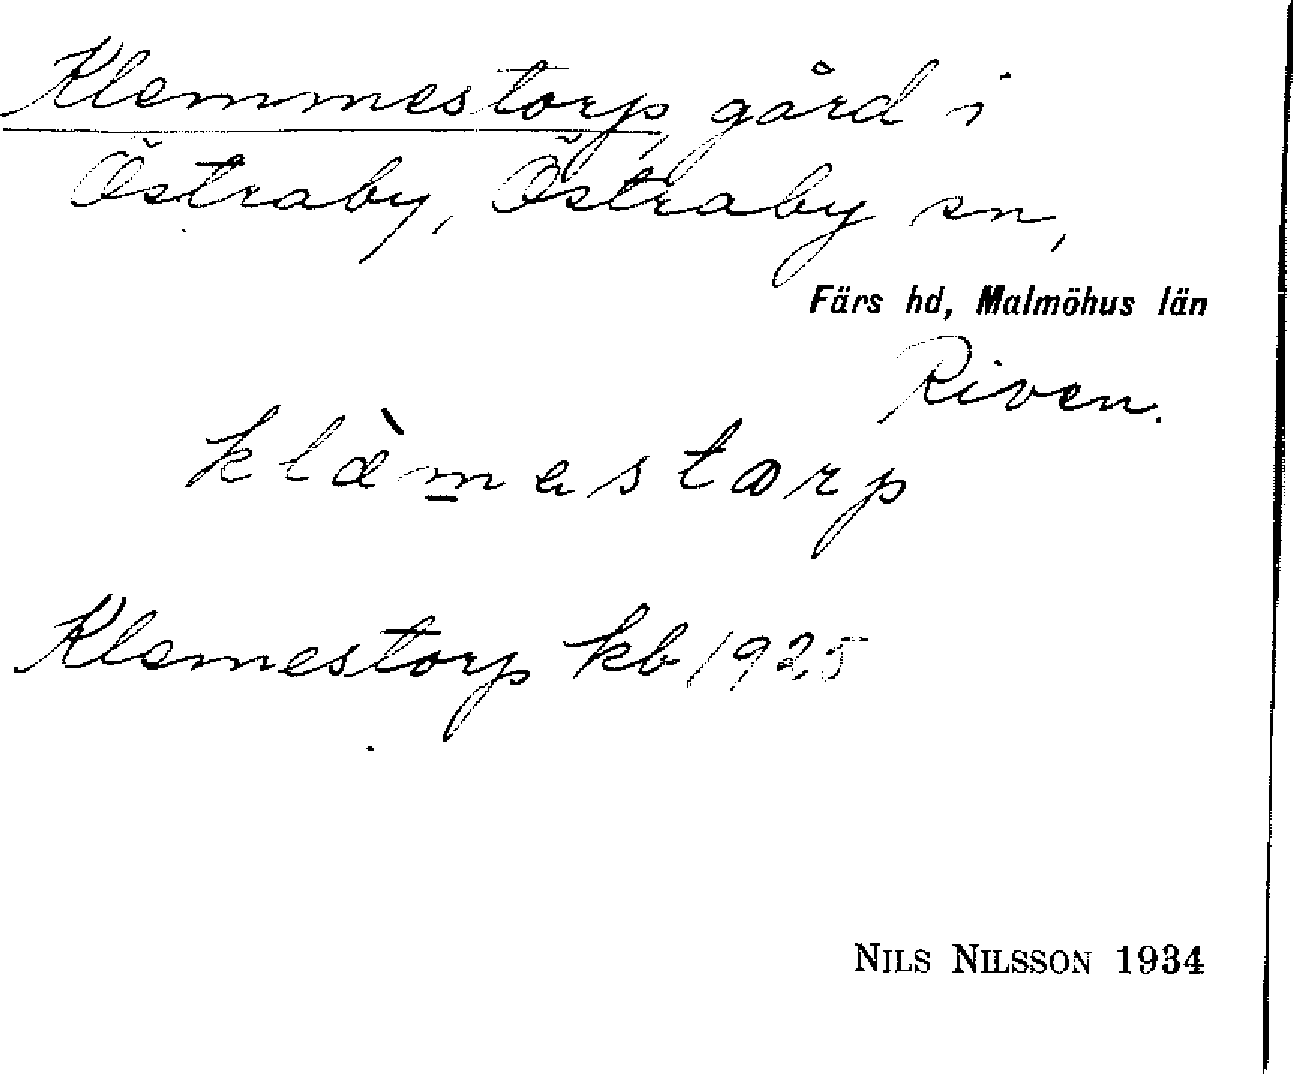 Klemmestorp gård i
Östraby, Östraby sn,
Färs hd, Malmöhus län
Riven.
klæ̀m̲estorp
Klemestorp kb 1925
NILS NILSSON 1934